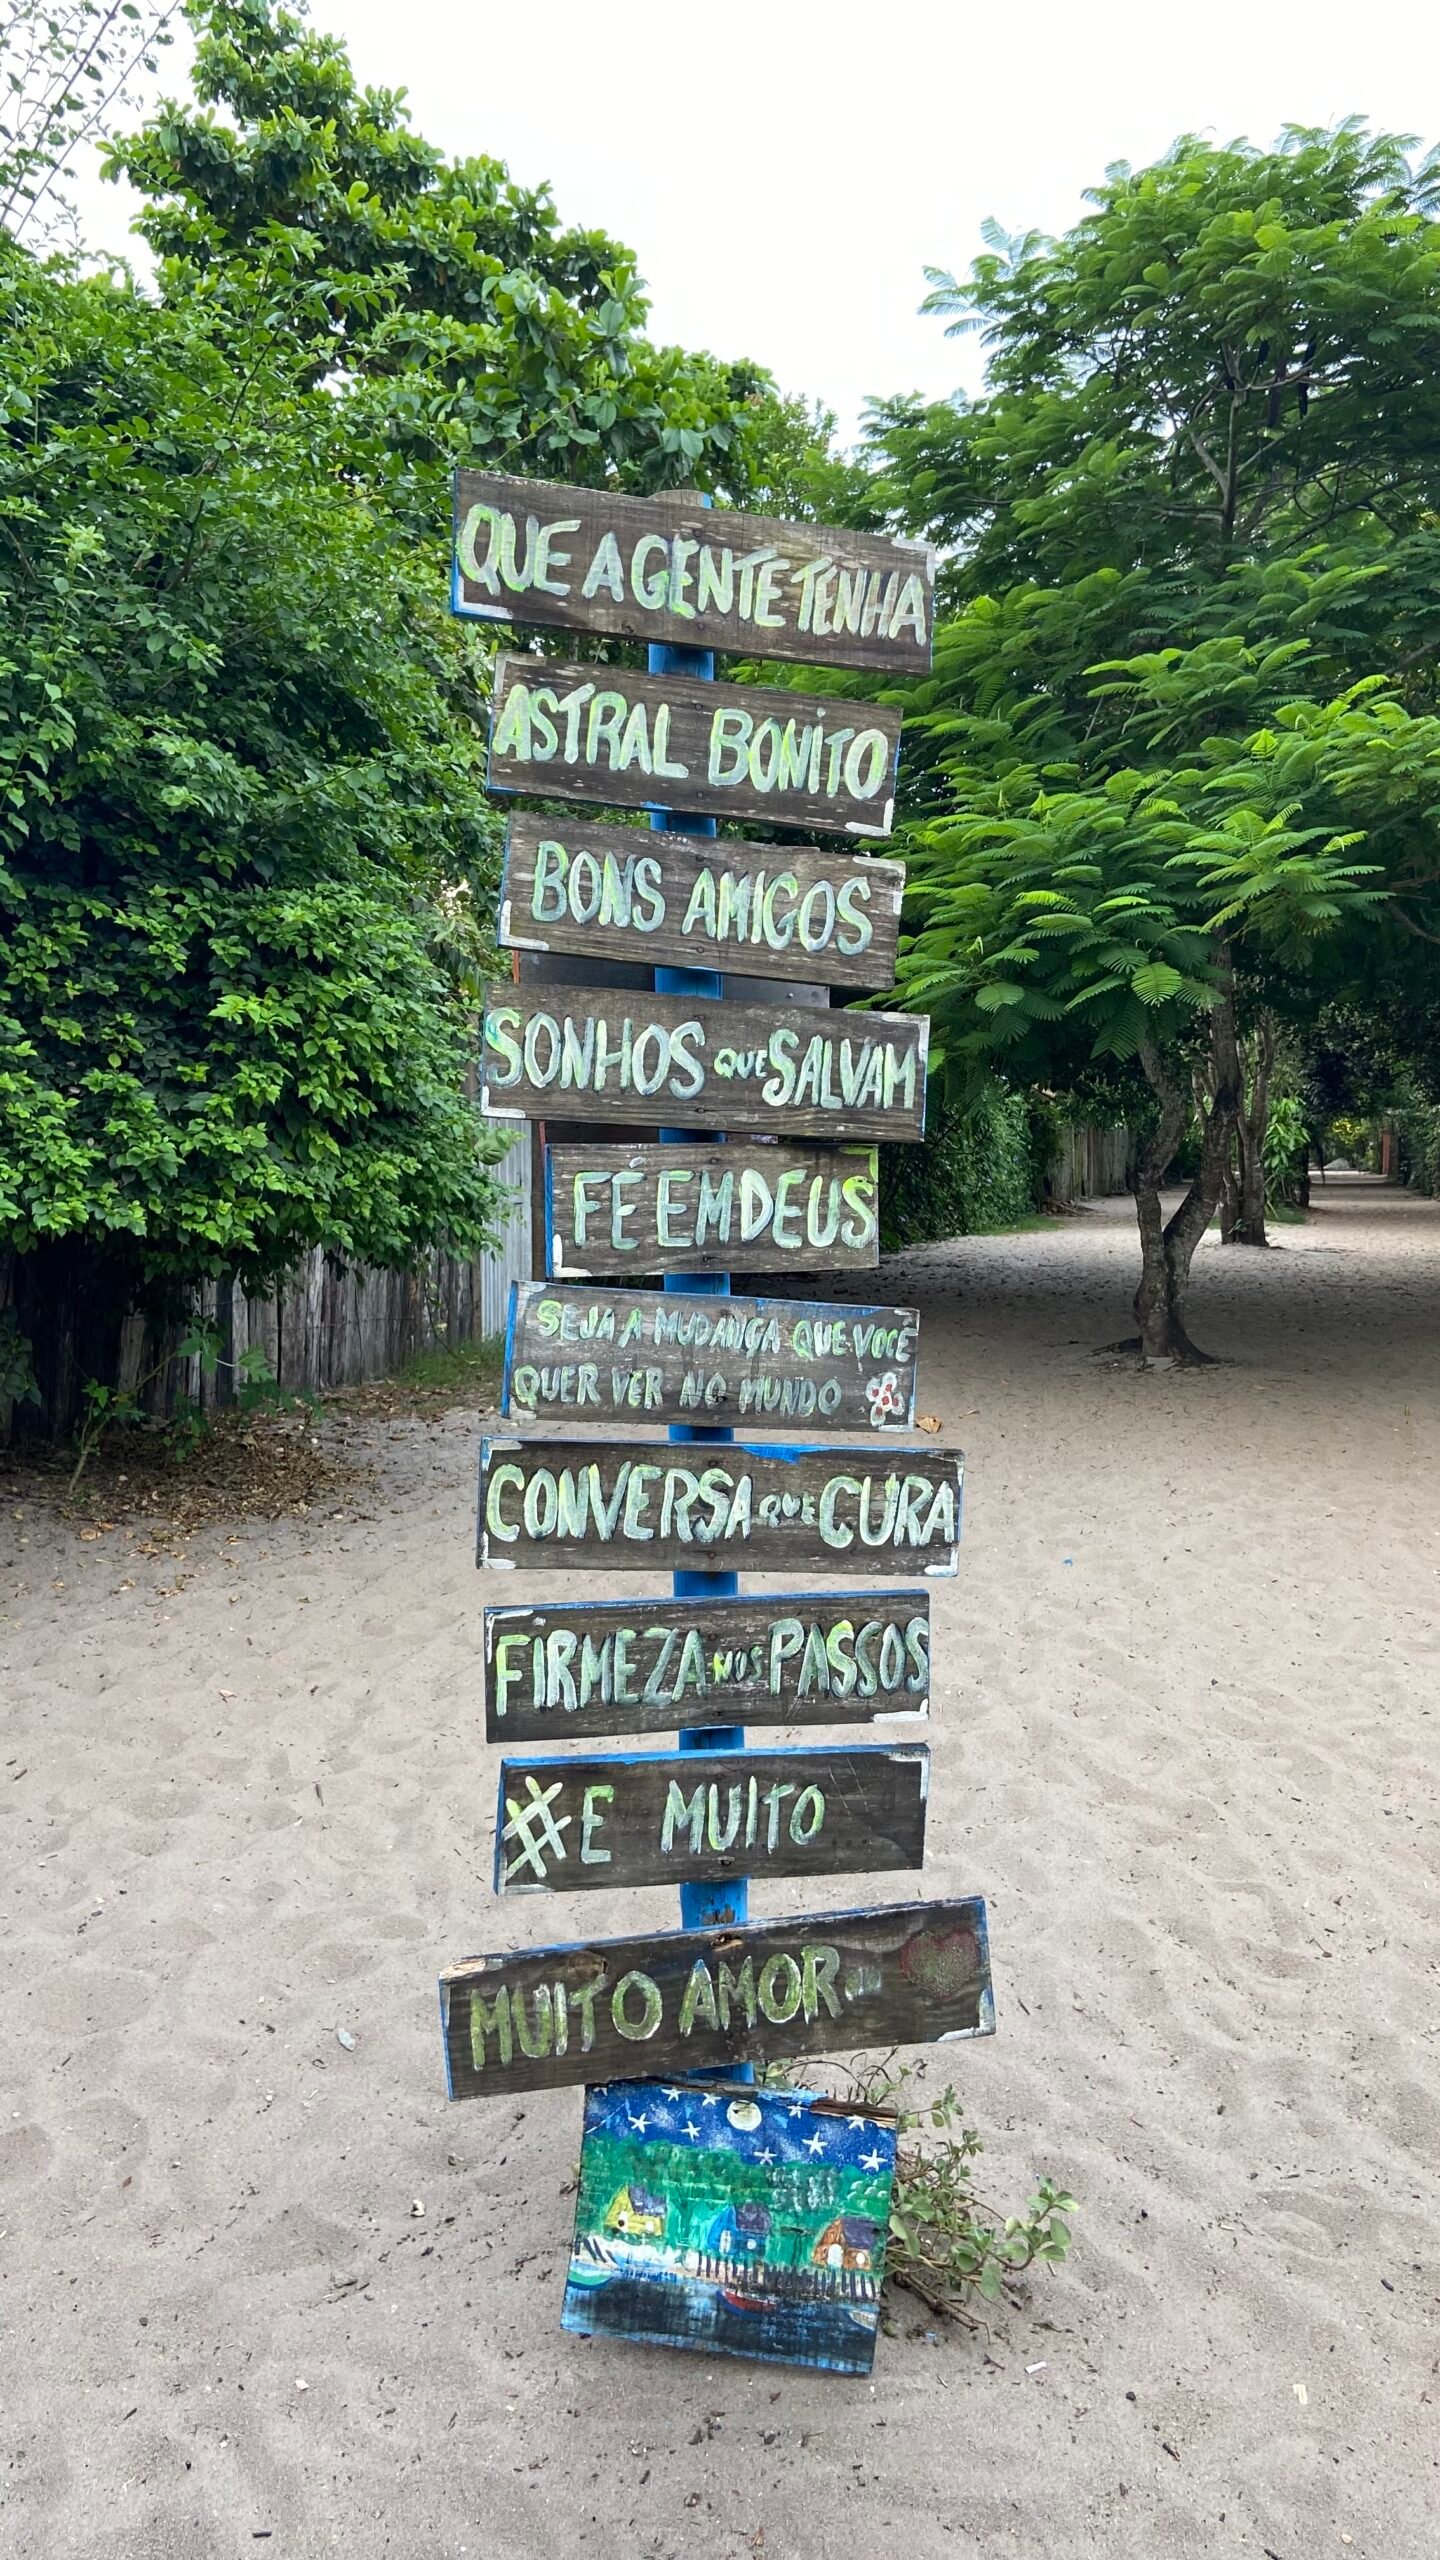 QUE A GENTE TENHA
ASTRAL BONITO
BONS AMIGOS
SONHOS QUE SALVAM
FÉ EM DEUS
SEJA A MUDANÇA QUE VOCÊ
QUER VER NO MUNDO
CONVERSA QUE CURA
FIRMEZA NOS PASSOS
#E MUITO
MUITO AMOR